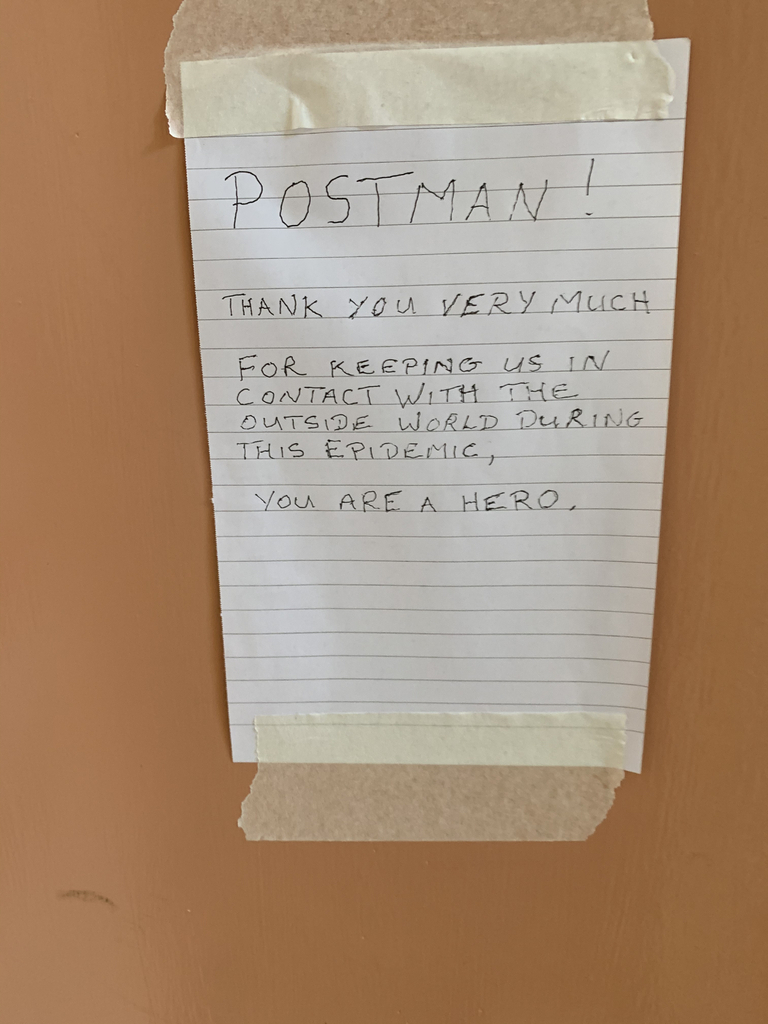 POSTMAN!
THANK YOU VERY MUCH
FOR KEEPING US IN
CONTACT WITH THE
OUTSIDE WORLD DURING
THIS EPIDEMIC,
YOU ARE A HERO.